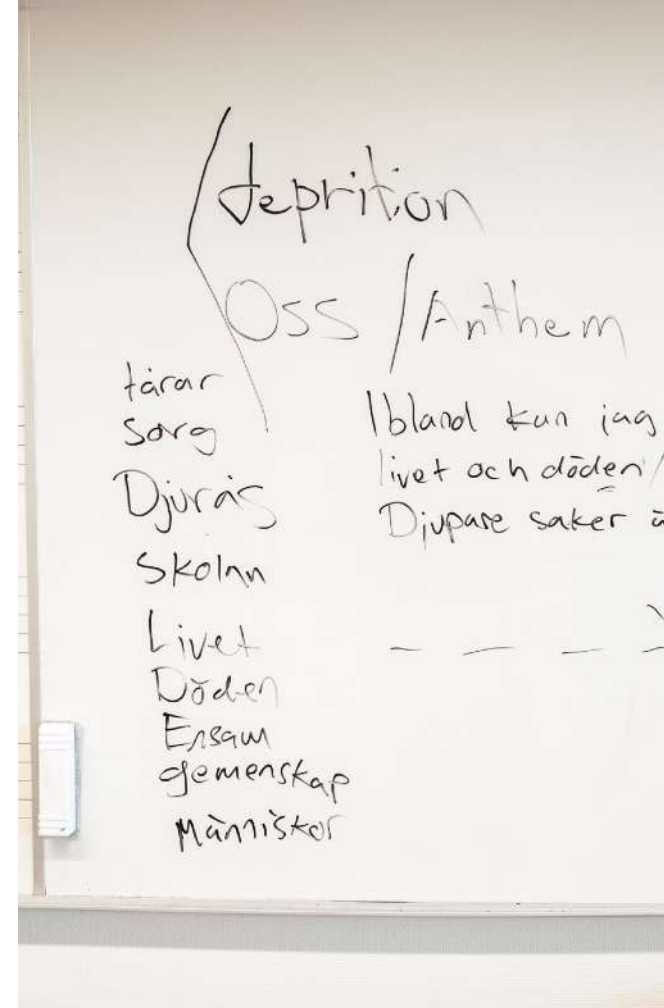 deprition
Oss / Anthem
tårar
sorg
Djurås
Skolan
Livet
Döden
Ensam
gemenskap
Människor
Ibland kan jag
livet och döden /
Djupare saker ä